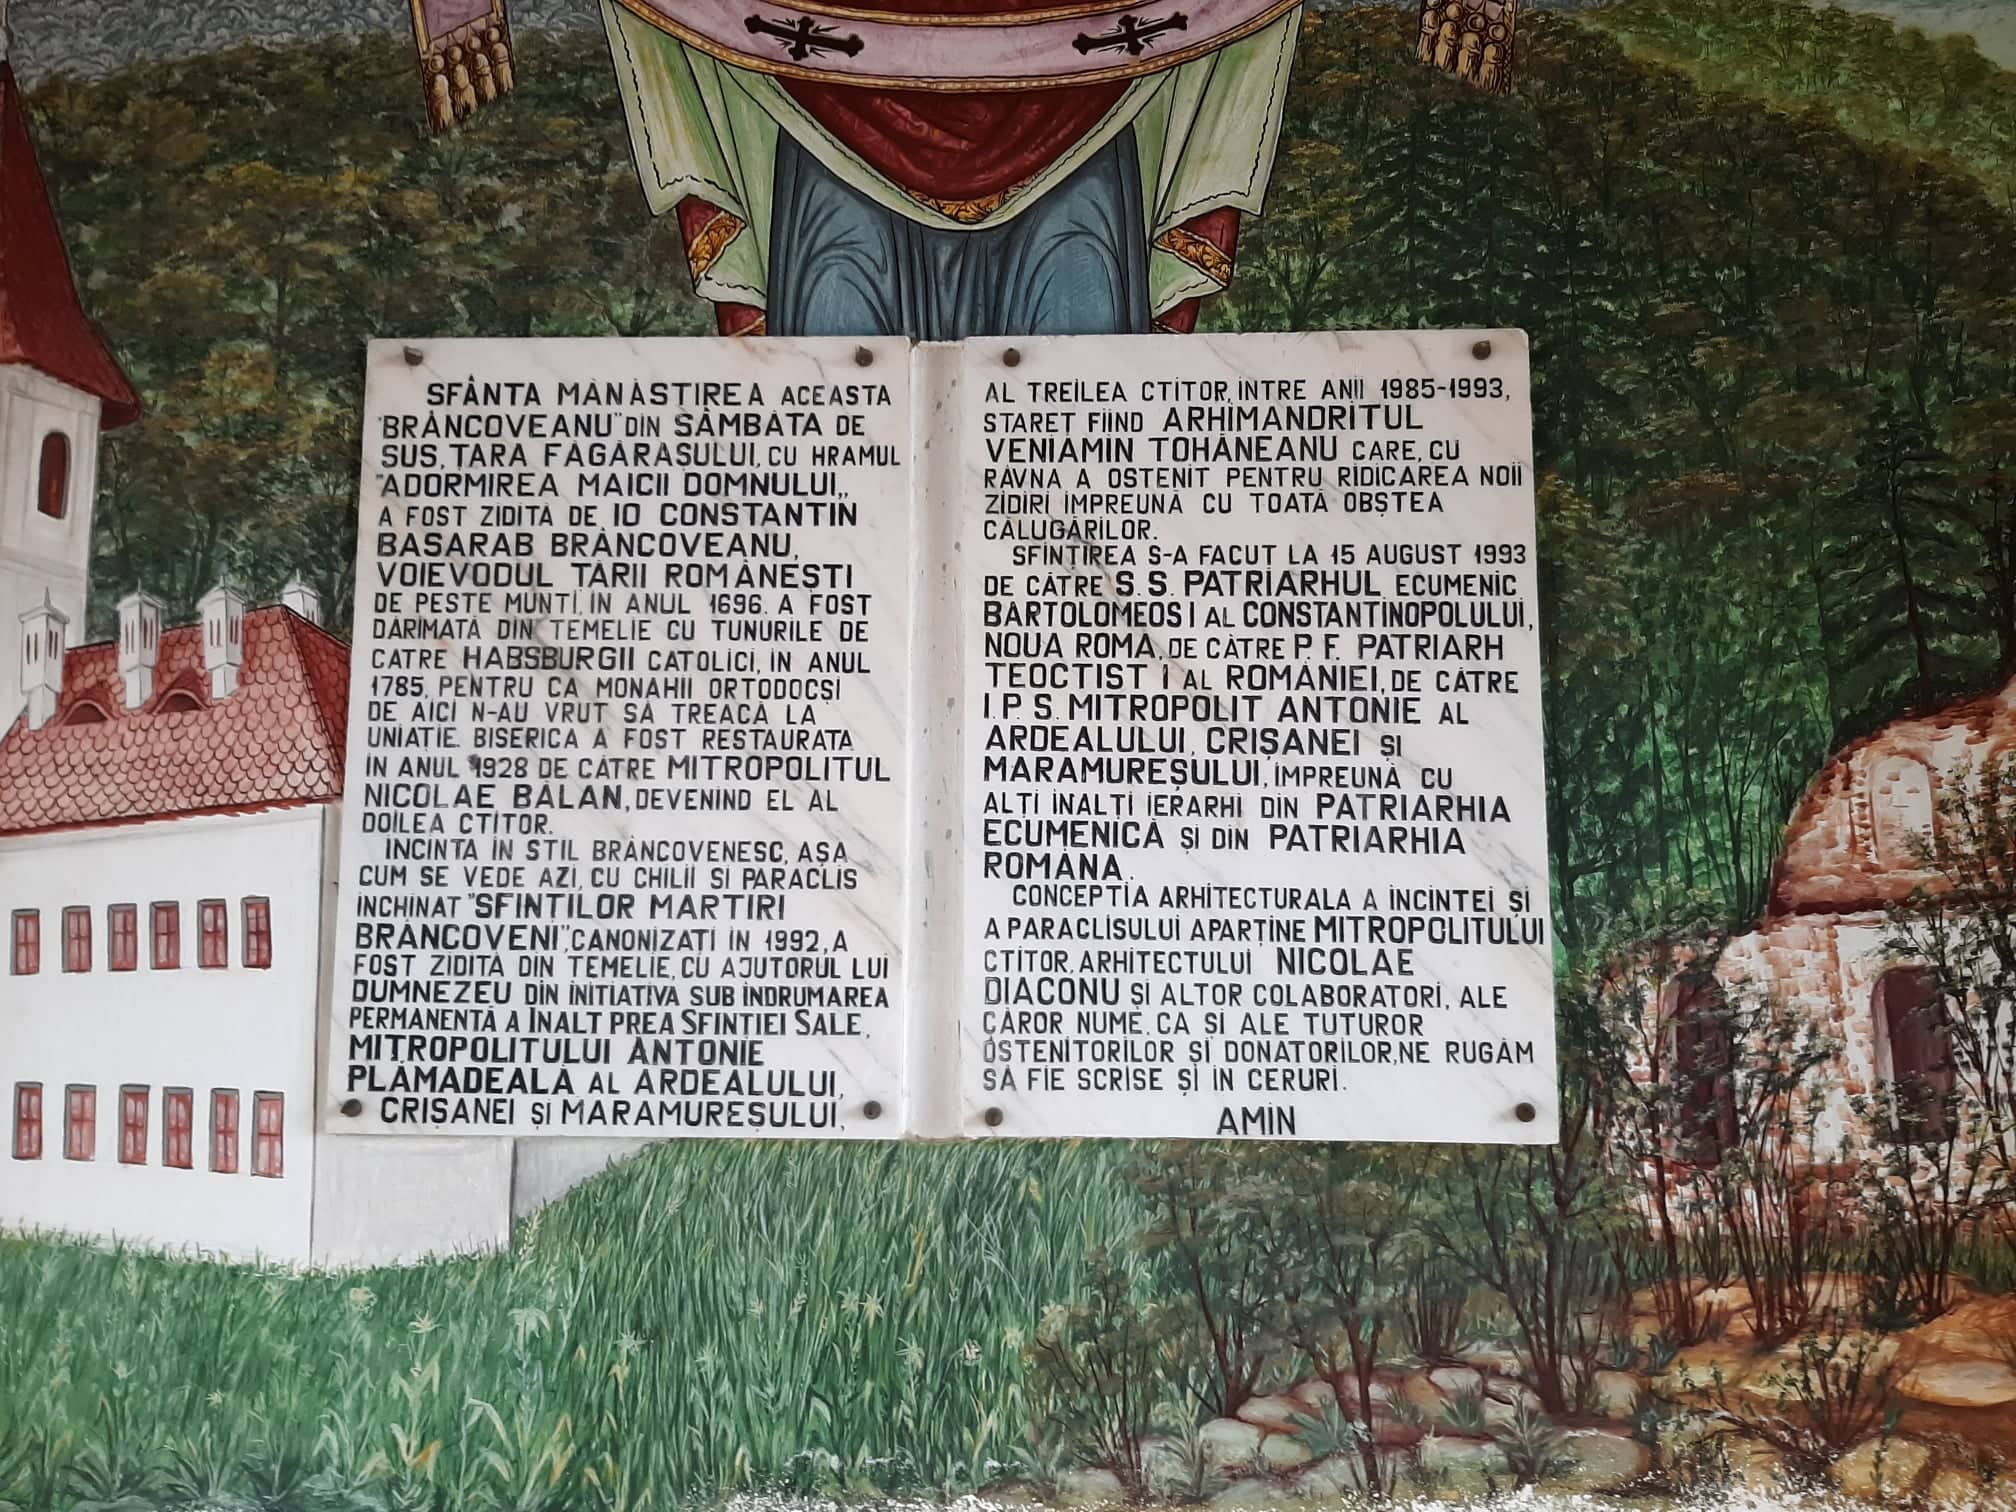 SFÂNTA MĂNĂSTIREA ACEASTA
"BRÂNCOVEANU" DIN SÂMBĂTA DE
SUS, ȚARA FĂGĂRAȘULUI, CU HRAMUL
"ADORMIREA MAICII DOMNULUI„
A FOST ZIDITĂ DE IO CONSTANTIN
BASARAB BRÂNCOVEANU,
VOIEVODUL ȚĂRII ROMÂNEȘTI
DE PESTE MUNȚI, ÎN ANUL 1696. A FOST
DĂRÎMATĂ DIN TEMELIE CU TUNURILE DE
CĂTRE HABSBURGII CATOLICI, ÎN ANUL
1785, PENTRU CĂ MONAHII ORTODOCȘI
DE AICI N-AU VRUT SĂ TREACĂ LA
UNIAȚIE. BISERICA A FOST RESTAURATĂ
ÎN ANUL 1928 DE CĂTRE MITROPOLITUL
NICOLAE BĂLAN, DEVENIND EL AL
DOILEA CTITOR.
INCINTA ÎN STIL BRÂNCOVENESC, AȘA
CUM SE VEDE AZI, CU CHILII ȘI PARACLIS
ÎNCHINAT "SFINȚILOR MARTIRI
BRÂNCOVENI", CANONIZAȚI ÎN 1992, A
FOST ZIDITĂ DIN TEMELIE, CU AJUTORUL LUI
DUMNEZEU DIN INIȚIATIVA SUB ÎNDRUMAREA
PERMANENTĂ A ÎNALT PREA SFINȚIEI SALE,
MITROPOLITULUI ANTONIE
PLĂMĂDEALĂ AL ARDEALULUI,
CRIȘANEI ȘI MARAMUREȘULUI,
AL TREILEA CTITOR, ÎNTRE ANII 1985-1993,
STAREȚ FIIND ARHIMANDRITUL
VENIAMIN TOHĂNEANU CARE, CU
RÂVNĂ A OSTENIT PENTRU RIDICAREA NOII
ZIDIRI ÎMPREUNĂ CU TOATĂ OBȘTEA
CĂLUGĂRILOR.
SFINȚIREA S-A FĂCUT LA 15 AUGUST 1993
DE CĂTRE S.S. PATRIARHUL ECUMENIC
BARTOLOMEOS I AL CONSTANTINOPOLULUI,
NOUA ROMĂ, DE CĂTRE P. F. PATRIARH
TEOCTIST I AL ROMÂNIEI, DE CĂTRE
I.P.S. MITROPOLIT ANTONIE AL
ARDEALULUI, CRIȘANEI ȘI
MARAMUREȘULUI, ÎMPREUNĂ CU
ALȚI ÎNALȚI IERARHI DIN PATRIARHIA
ECUMENICĂ ȘI DIN PATRIARHIA
ROMÂNĂ.
CONCEPȚIA ARHITECTURALĂ A INCINTEI ȘI
A PARACLISULUI APARȚINE MITROPOLITULUI
CTITOR, ARHITECTULUI NICOLAE
DIACONU ȘI ALTOR COLABORATORI, ALE
CĂROR NUME, CA ȘI ALE TUTUROR
OSTENITORILOR ȘI DONATORILOR, NE RUGĂM
SĂ FIE SCRISE ȘI ÎN CERURI.
AMIN